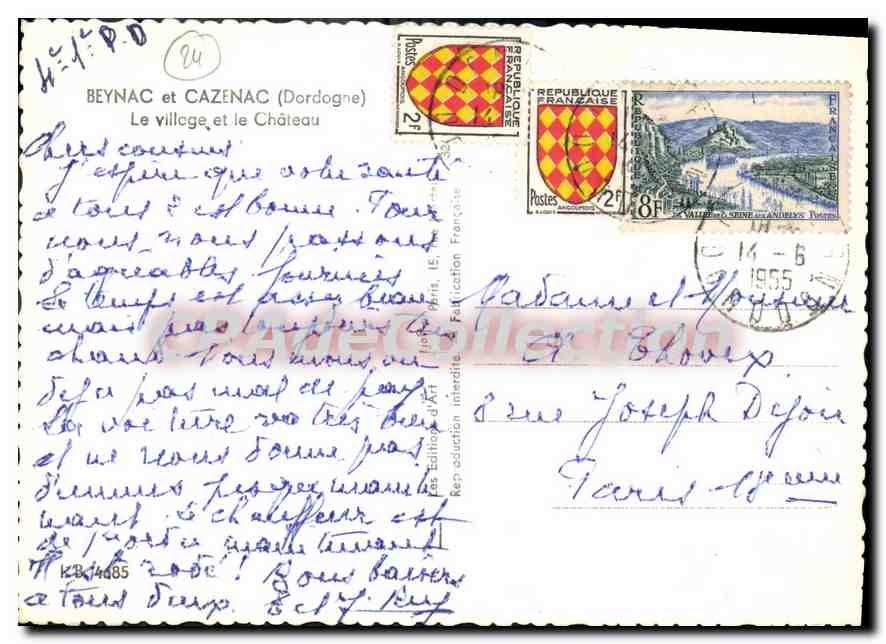 4e 1e P.D
24
BEYNAC et CAZENAC (Dordogne)
Le village et le Château
Chers cousins
J'espère que votre santé
a tous 2 est bonne. Pour
nous nous passons
d'agréables journées
Le temps est assez beau
mais pas toujours
chaud Nous avons vu
deja pas mal de pays
La voiture va très bien
et ne nous donne pas
d'ennuis
Le chauffeur est
maintenant
rodé ! Bons baisers
a tous deux
K.B. 4685
Les Editions d'Art Paris, 15, rue
Reproduction interdite Fabrication Française
REPUBLIQUE FRANÇAISE
Postes
ANGOUMOIS
2F
REPUBLIQUE FRANÇAISE
Postes
ANGOUMOIS
2F
REPUBLIQUE FRANÇAISE
8F
LA VALLEE DE LA SEINE AUX ANDELYS Postes
14 - 6
1955
Madame et Monsieur
8 rue Joseph Dijon
Paris 18eme
CPADeCollection